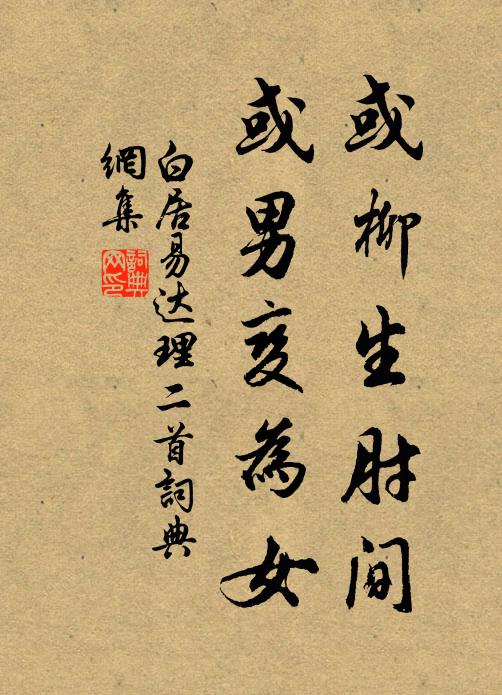 或柳生肘间
或男变為女
白居易达理二首詞典
網集
詞典
网印